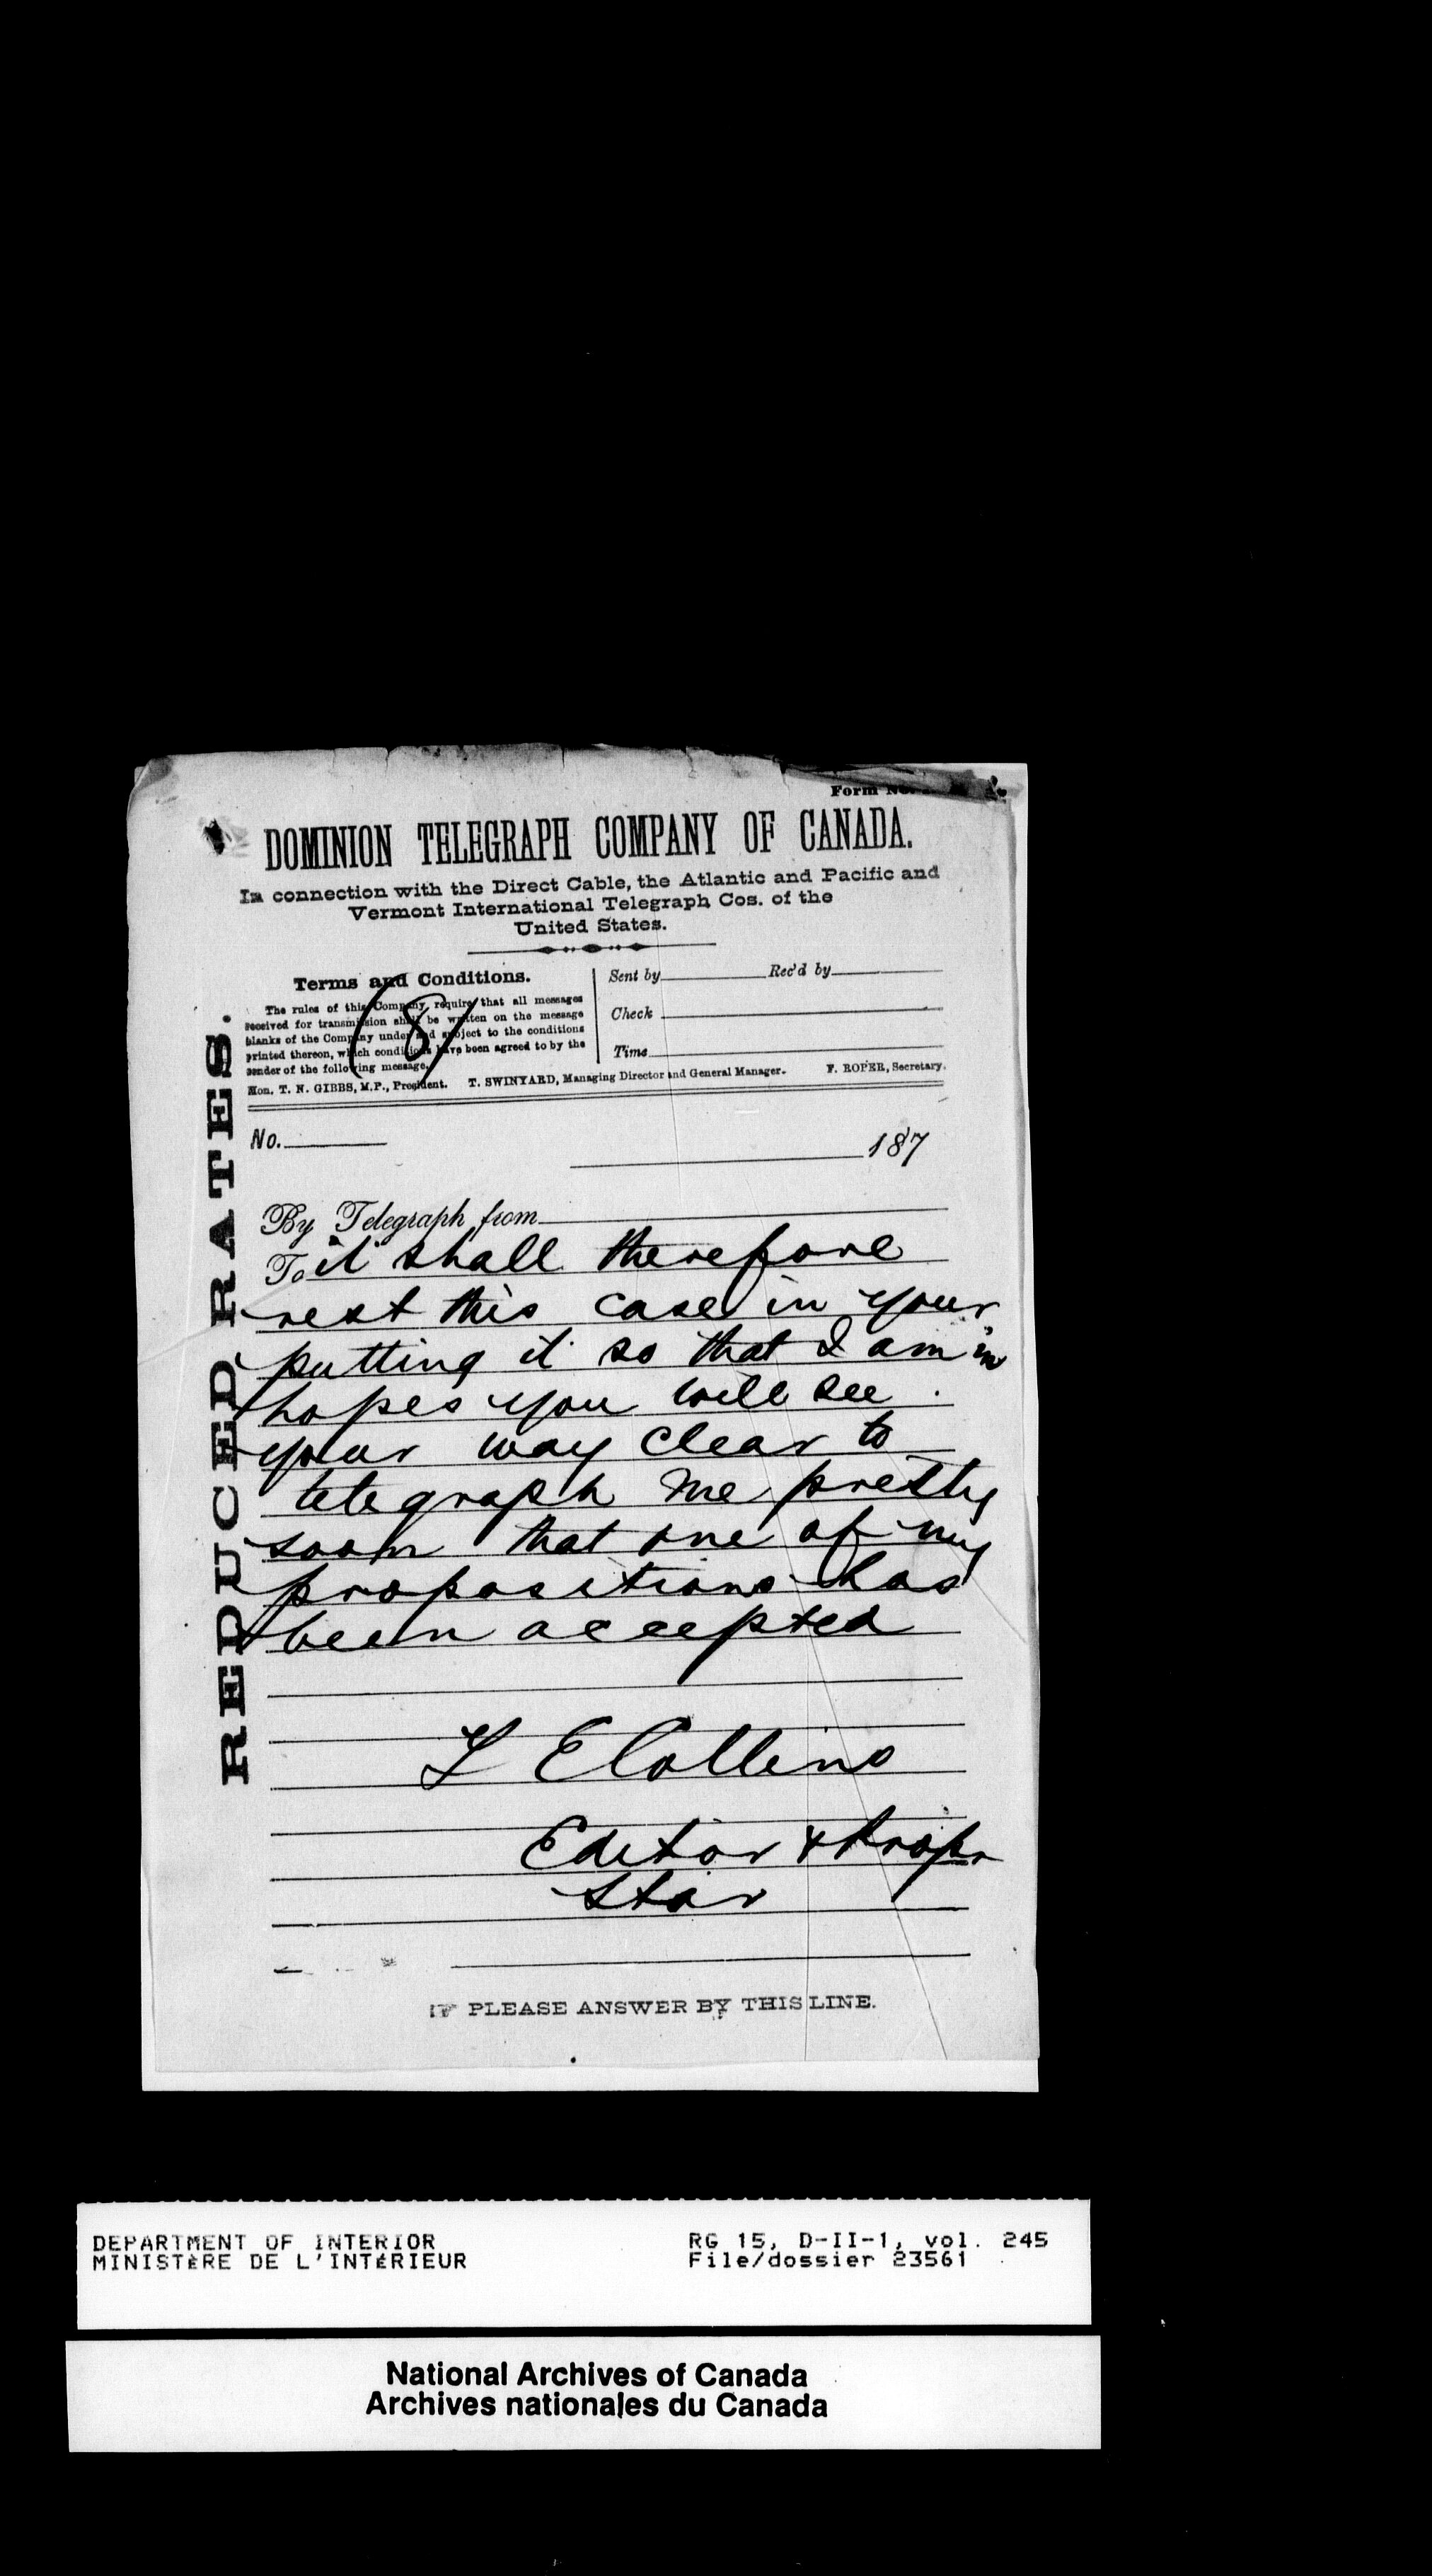 Form No.
DOMINION TELEGRAPH COMPANY OF CANADA.
In connection with the Direct Cable, the Atlantic and Pacific and
Vermont International Telegraph Cos. of the
United States.
Terms and Conditions.
The rules of this Company require that all messages
received for transmission shall be written on the message
blanks of the Company under and subject to the conditions
printed thereon, which conditions have been agreed to by the
sender of the following message.
(8)
Sent by Rec'd by
Check
Time
Hon. T. N. GIBBS, M.P., President. T. SWINYARD, Managing Director and General Manager. F. ROPER, Secretary.
REDUCED RATES.
No.
187
By Telegraph from
To it shall therefore
rest this case in your
putting it so that I am in
hopes you will see
your way clear to
telegraph me pretty
soon that one of my
propositions has
been accepted
E Collins
Editor & Propr
Star
PLEASE ANSWER BY THIS LINE.
DEPARTMENT OF INTERIOR
MINISTÈRE DE L'INTÉRIEUR
RG 15, D-II-1, vol. 245
File/dossier 23561
National Archives of Canada
Archives nationales du Canada